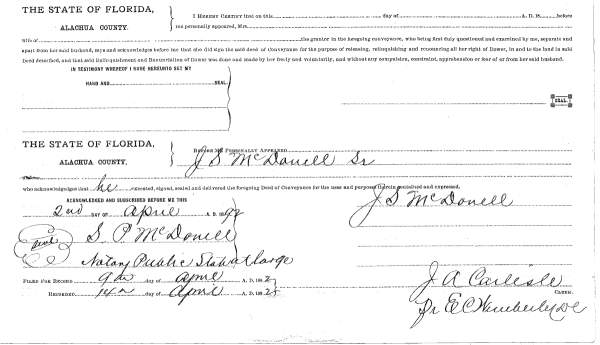 THE STATE OF FLORIDA,
ALACHUA COUNTY.
I HEREBY CERTIFY that on this day of A. D. 18 before
me personally appeared, Mrs.
wife of the grantor in the foregoing conveyance, who being first duly questioned and examined by me, separate and
apart from her said husband, says and acknowledges before me that she did sign the said deed of Conveyance for the purpose of releasing, relinquishing and renouncing all her right of Dower, in and to the land in said
Deed described, and that said Relinquishment and Renunciation of Dower was done and made by her freely and voluntarily, and without any compulsion, constraint, apprehension or fear of or from her said husband.
IN TESTIMONY WHEREOF I HAVE HEREUNTO SET MY
HAND AND SEAL.
SEAL.
THE STATE OF FLORIDA,
ALACHUA COUNTY.
BEFORE ME PERSONALLY APPEARED
J S McDonell Sr
who acknowledges that he executed, signed, sealed and delivered the foregoing Deed of Conveyance for the uses and purposes therein mentioned and expressed.
ACKNOWLEDGED AND SUBSCRIBED BEFORE ME THIS
2nd DAY OF April A. D. 1892
J S McDonell
Seal
S. P. McDonell
Notary Public State at Large
FILED FOR RECORD 9th day of April A. D. 1892
RECORDED 14th day of April A. D. 1892
J A Carlisle
CLERK.
Pr E C Wimberly DC